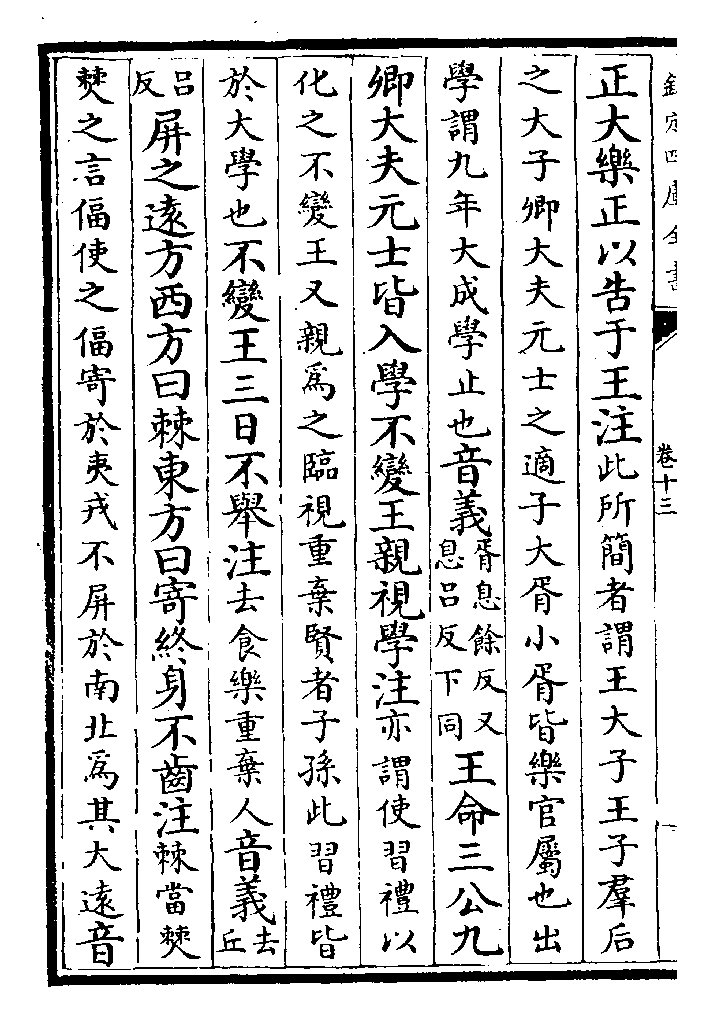 欽定四庫全書
卷十三
正大樂正以告于王注此所簡者謂王大子王子羣后
之大子卿大夫元士之適子大胥小胥皆樂官屬也出
學謂九年大成學止也音義胥息餘反又息呂反下同王命三公九
卿大夫元士皆入學不變王親視學注亦謂使習禮以
化之不變王又親為之臨視重棄賢者子孫此習禮皆
於大學也不變王三日不舉注去食樂重棄人音義去丘
呂反屏之遠方西方曰棘東方曰寄終身不齒注棘當僰
僰之言偪使之偪寄於夷戎不屏於南北為其大遠音